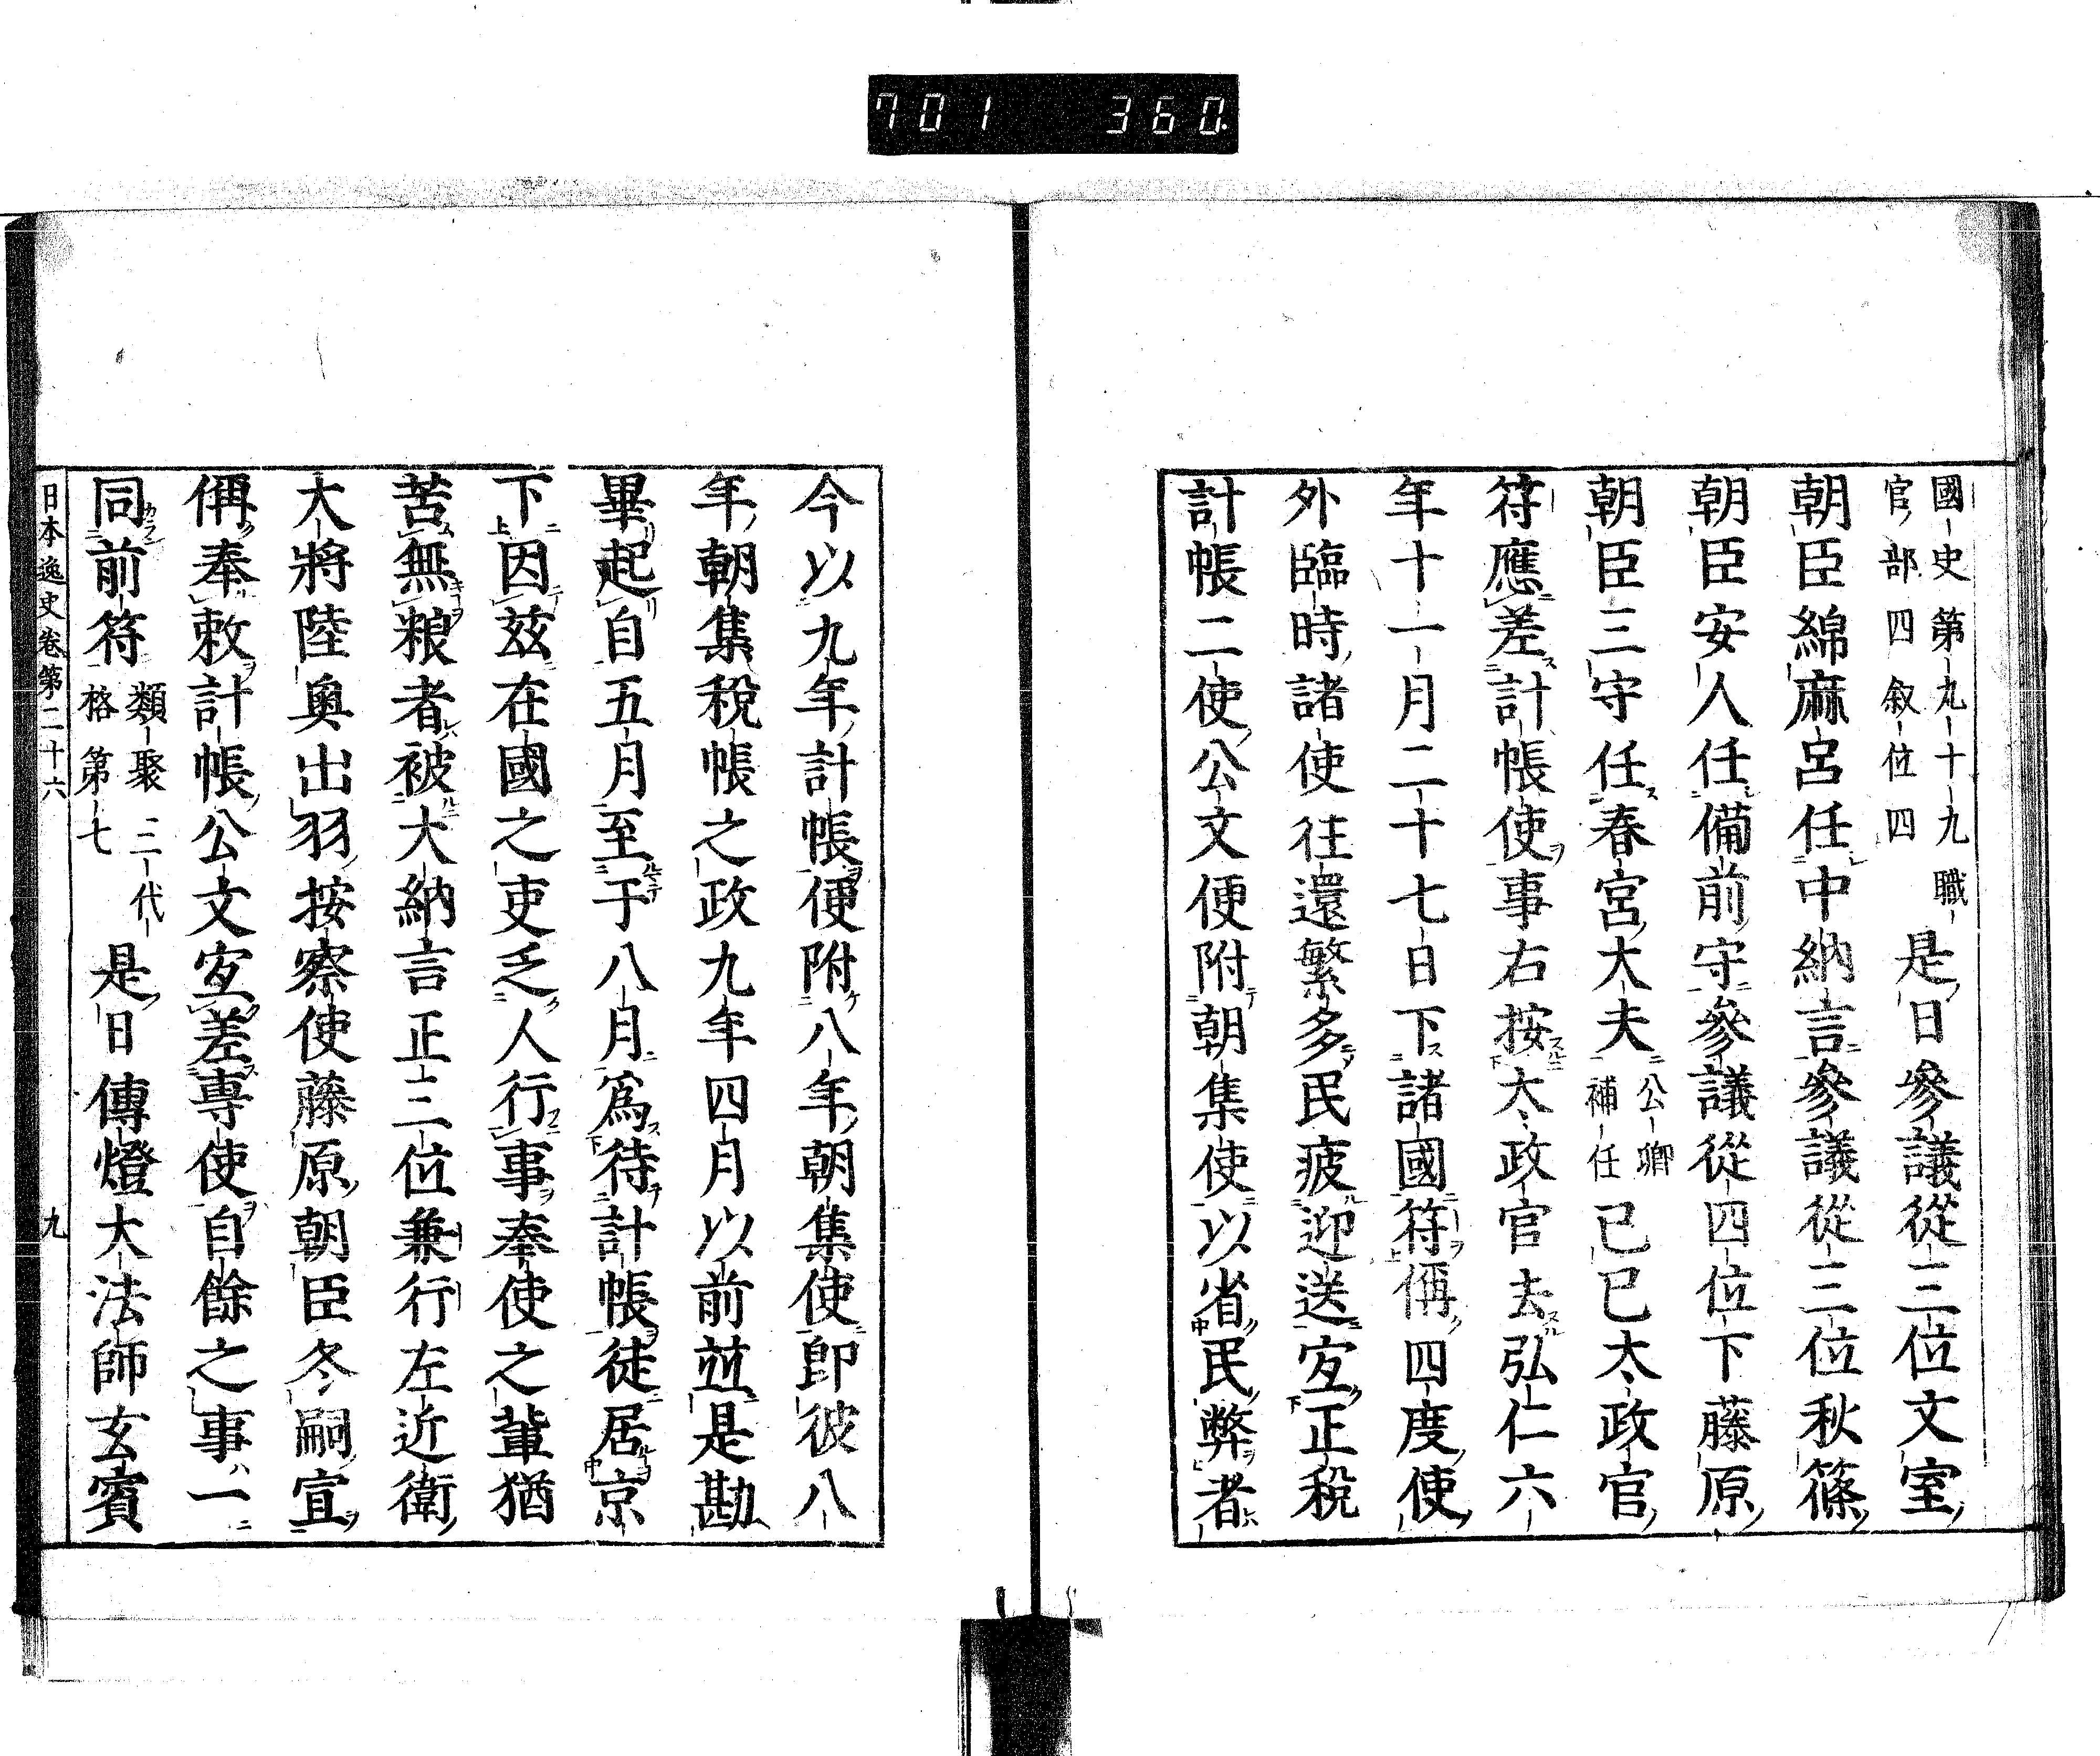 701 360.
國史第九十九 職
官部四叙位四
是日參議從三位文室
朝臣綿麻呂任中納言參議從三位秋篠
朝臣安人任備前守參議從四位下藤原
朝臣三守任春宮大夫 公卿
補任 已巳太政官
符應差計帳使事右按太政官去弘仁六
年十一月二十七日下諸國符偁四度使
外臨時諸使往還繁多民疲迎送冝正稅
計帳二使公文便附朝集使以省民弊者
今以九年計帳便附八年朝集使即彼八
年朝集稅帳之政九年四月以前並是勘
畢起自五月至于八月爲待計帳徒居京
下因茲在國之吏乏人行事奉使之輩猶
苦無粮者被大納言正三位兼行左近衛
大將陸奧出羽按察使藤原朝臣冬嗣宣
偁奉敕計帳公文冝差專使自餘之事一
同前符 類聚三代
格第七
是日傳燈大法師玄賓
日本逸史卷第二十六 九